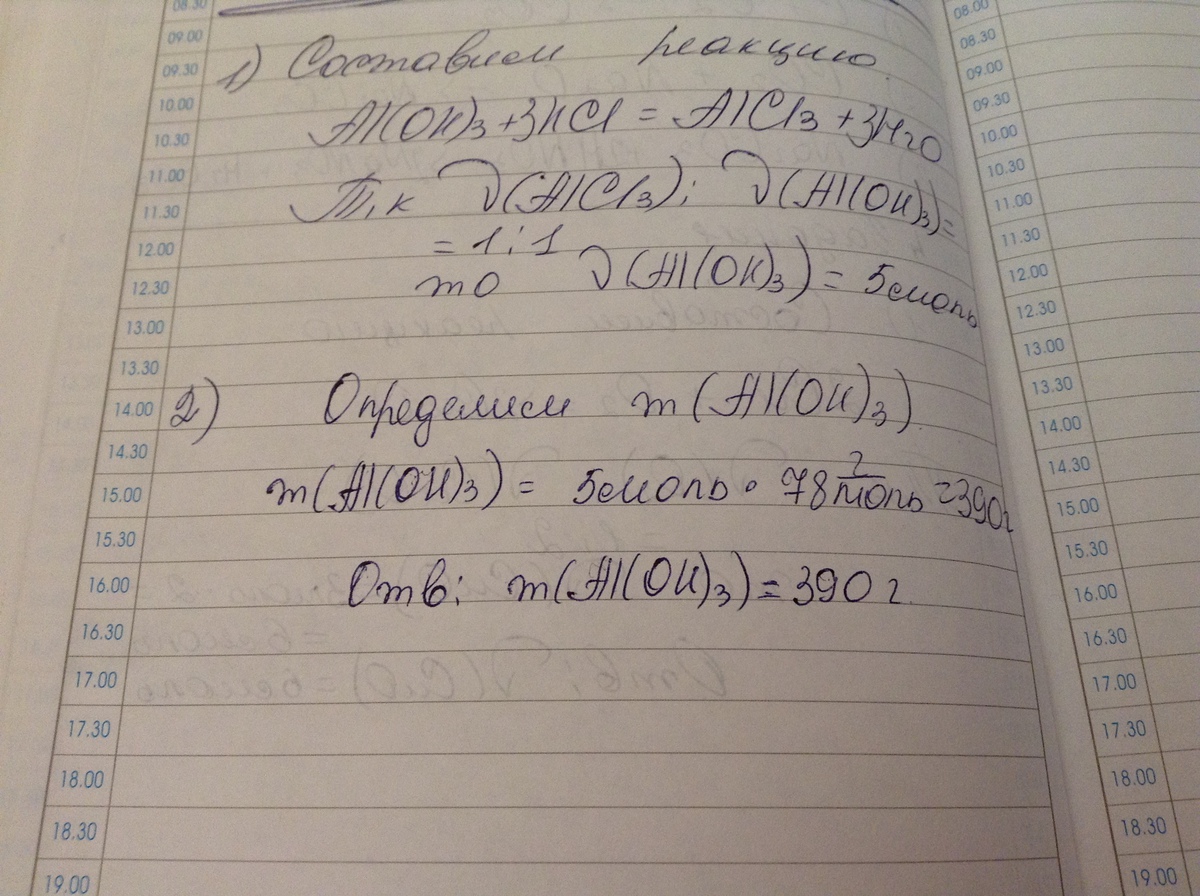 08.30
09.00
09.30
10.00
10.30
11.00
11.30
12.00
12.30
13.00
13.30
14.00
14.30
15.00
15.30
16.00
16.30
17.00
17.30
18.00
18.30
19.00
1) Составим реакцию.
Al(OH)3 + 3HCl = AlCl3 + 3H2O
Т.к ν(AlCl3) : ν(Al(OH)3) =
= 1 : 1
то ν(Al(OH)3) = 5моль
2) Определим m(Al(OH)3)
m(Al(OH)3) = 5моль · 78 г/моль = 390г
Отв: m(Al(OH)3) = 390 г.
08.00
08.30
09.00
09.30
10.00
10.30
11.00
11.30
12.00
12.30
13.00
13.30
14.00
14.30
15.00
15.30
16.00
16.30
17.00
17.30
18.00
18.30
19.00